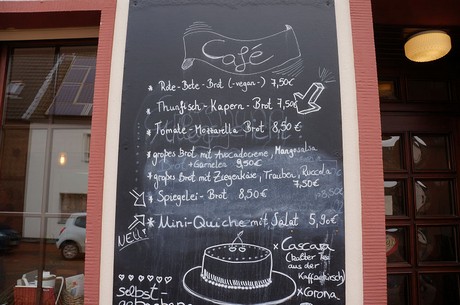 Café
* Rote-Bete-Brot (-vegan-) 7,50€
* Thunfisch-Kapern-Brot 7,50€
* Tomate-Mozzarella Brot 8,50€
* großes Brot mit Avocadocreme, Mangosalsa
+Garnelen 9,50€
* großes Brot mit Ziegenkäse, Trauben, Ruccola
7,50€
* Spiegelei-Brot 8,50€
* Mini-Quiche mit Salat 5,90€
NEU!
* Cascara
(kalter Tee
aus der
Kaffeekirsch)
* Corona
selbst-
gebackene